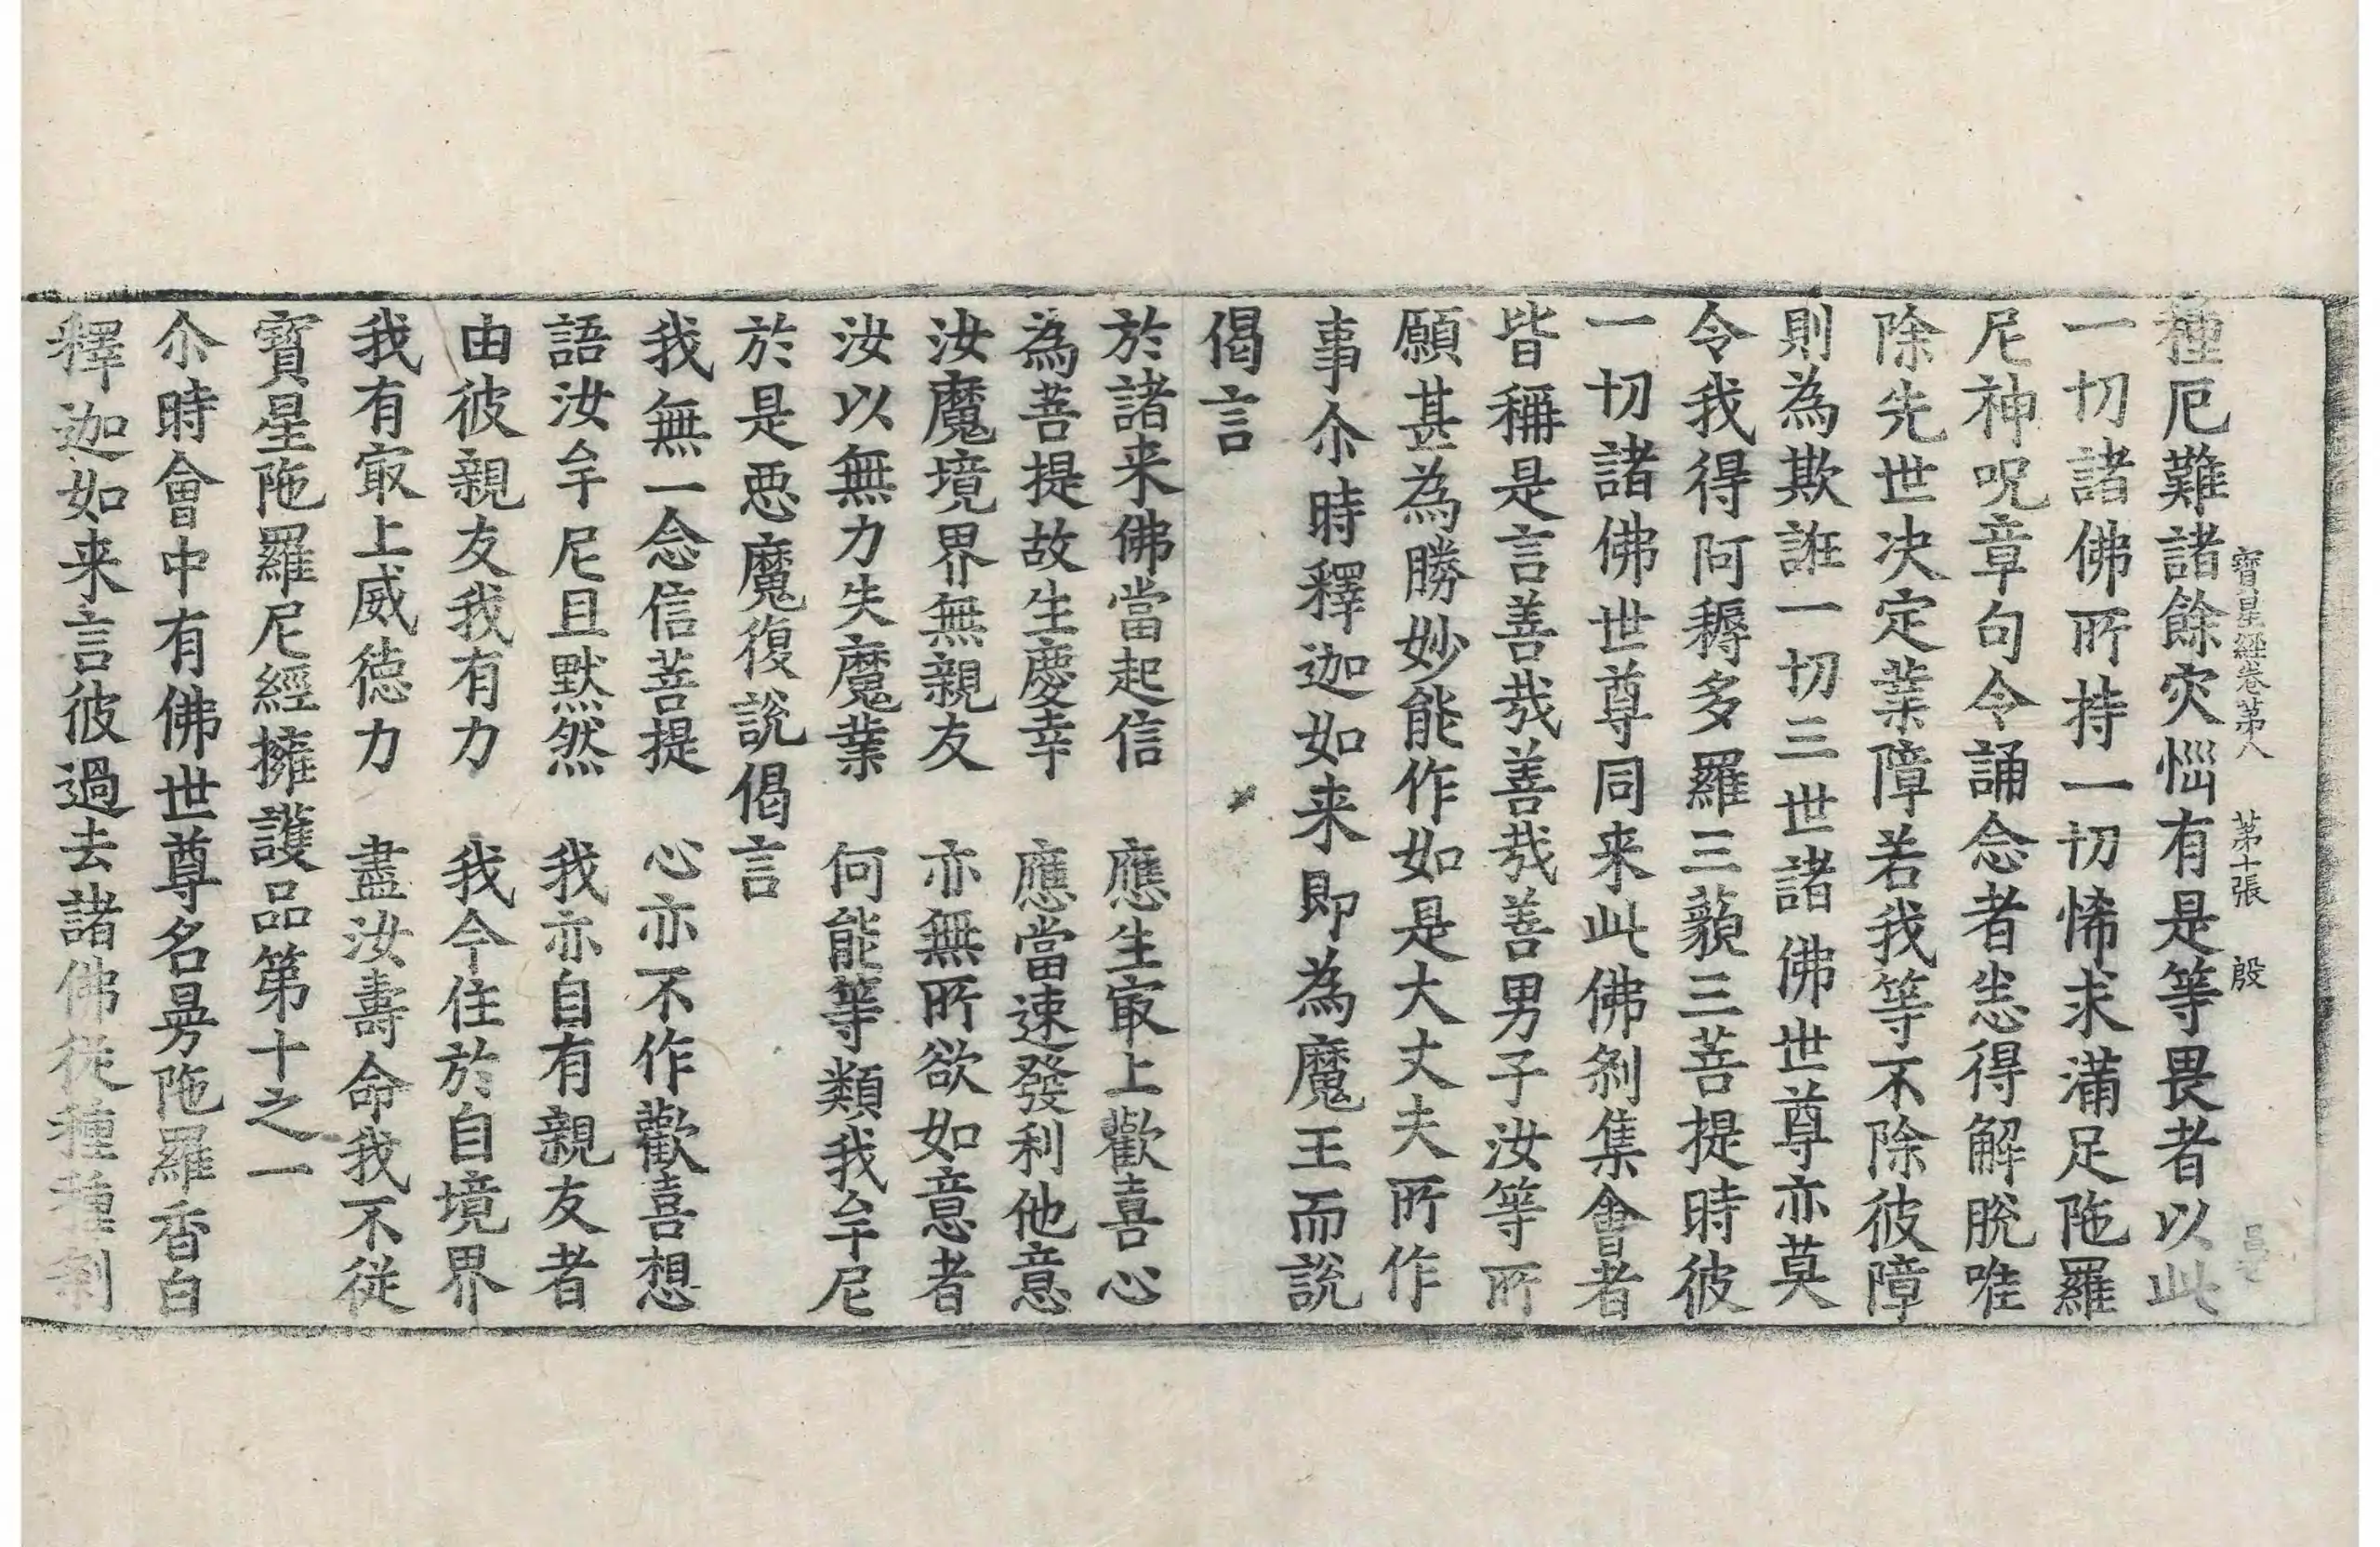 寶星經卷第八 第十張 殷
種厄難諸餘灾惱有是等畏者以此
一切諸佛所持一切悕求滿足陁羅
尼神呪章句令誦念者悉得解脫唯
除先世决定業障若我等不除彼障
則為欺誑一切三世諸佛世尊亦莫
令我得阿耨多羅三藐三菩提時彼
一切諸佛世尊同来此佛剎集會者
皆稱是言善哉善哉善男子汝等所
願甚為勝妙能作如是大丈夫所作
事尒時釋迦如来即為魔王而說
偈言
於諸来佛當起信 應生㝡上歡喜心
為菩提故生慶幸 應當速發利他意
汝魔境界無親友 亦無所欲如意者
汝以無力失魔業 何能等類我牟尼
於是惡魔復說偈言
我無一念信菩提 心亦不作歡喜想
語汝牟尼且默然 我亦自有親友者
由彼親友我有力 我今住於自境界
我有㝡上威德力 盡汝壽命我不從
寶星陁羅尼經擁護品第十之一
尒時會中有佛世尊名曼陁羅香白
釋迦如来言彼過去諸佛從種種剎